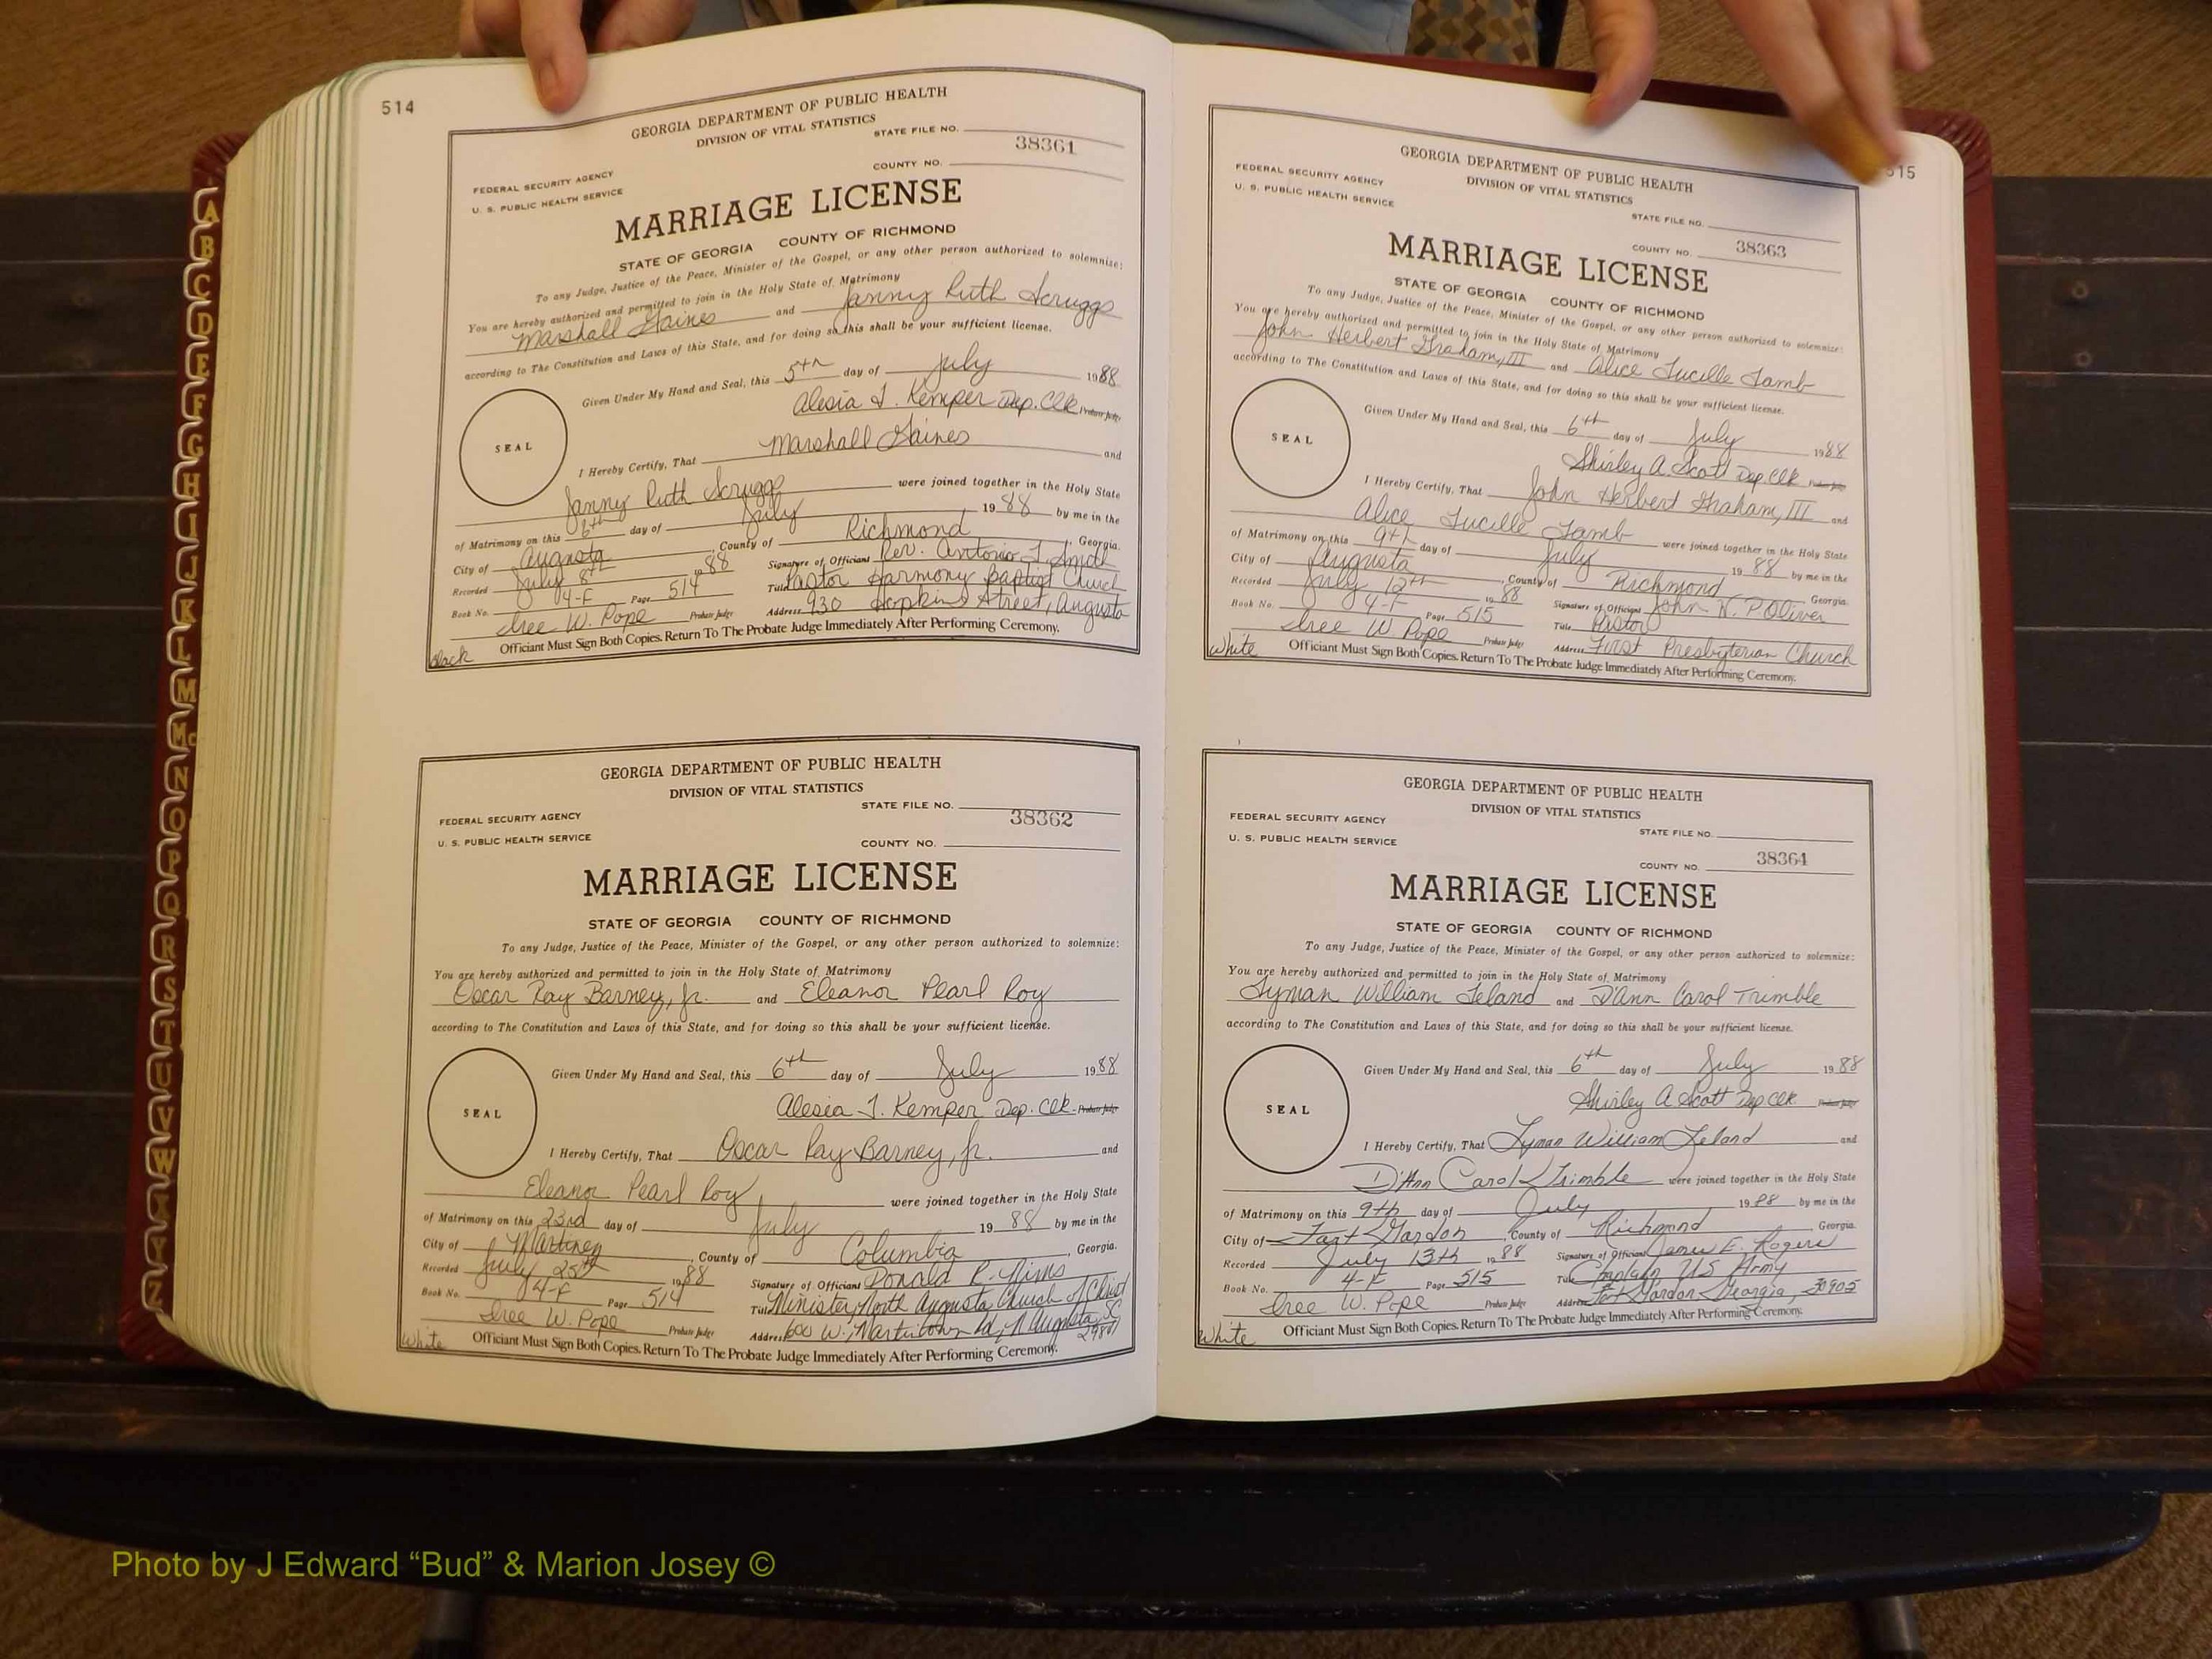 514
GEORGIA DEPARTMENT OF PUBLIC HEALTH
DIVISION OF VITAL STATISTICS
STATE FILE NO.
38361
FEDERAL SECURITY AGENCY
COUNTY NO.
U. S. PUBLIC HEALTH SERVICE
MARRIAGE LICENSE
STATE OF GEORGIA COUNTY OF RICHMOND
To any Judge, Justice of the Peace, Minister of the Gospel, or any other person authorized to solemnize:
You are hereby authorized and permitted to join in the Holy State of Matrimony
Marshall Gaines and Janny Ruth Scruggs
according to The Constitution and Laws of this State, and for doing so this shall be your sufficient license.
Given Under My Hand and Seal, this 5th day of July 1988
Alesia J. Kemper Dep. Clk Probate Judge
SEAL
I Hereby Certify, That Marshall Gaines and
Janny Ruth Scruggs were joined together in the Holy State
of Matrimony on this 6th day of July 1988 by me in the
City of Augusta, County of Richmond, Georgia.
Recorded July 8th 1988 Signature of Officiant Rev. Antonio J. Smith
Book No. 4-F Page 514 Title Pastor Harmony Baptist Church
Iree W. Pope Probate Judge Address 930 Hopkins Street, Augusta
Officiant Must Sign Both Copies. Return To The Probate Judge Immediately After Performing Ceremony.
Black
GEORGIA DEPARTMENT OF PUBLIC HEALTH
DIVISION OF VITAL STATISTICS
STATE FILE NO.
38362
FEDERAL SECURITY AGENCY
U. S. PUBLIC HEALTH SERVICE
COUNTY NO.
MARRIAGE LICENSE
STATE OF GEORGIA COUNTY OF RICHMOND
To any Judge, Justice of the Peace, Minister of the Gospel, or any other person authorized to solemnize:
You are hereby authorized and permitted to join in the Holy State of Matrimony
Oscar Ray Barney, Jr. and Eleanor Pearl Roy
according to The Constitution and Laws of this State, and for doing so this shall be your sufficient license.
Given Under My Hand and Seal, this 6th day of July 1988
Alesia J. Kemper Dep. Clk Probate Judge
SEAL
I Hereby Certify, That Oscar Ray Barney, Jr. and
Eleanor Pearl Roy were joined together in the Holy State
of Matrimony on this 23rd day of July 1988 by me in the
City of Martinez, County of Columbia, Georgia.
Recorded July 25th 1988 Signature of Officiant Donald R. Nims
Book No. 4-F Page 514 Title Minister, North Augusta Church of Christ
Iree W. Pope Probate Judge Address 600 W. Martintown Rd, N Augusta, SC
Officiant Must Sign Both Copies. Return To The Probate Judge Immediately After Performing Ceremony.
White
515
GEORGIA DEPARTMENT OF PUBLIC HEALTH
DIVISION OF VITAL STATISTICS
FEDERAL SECURITY AGENCY
U. S. PUBLIC HEALTH SERVICE
STATE FILE NO.
COUNTY NO. 38363
MARRIAGE LICENSE
STATE OF GEORGIA COUNTY OF RICHMOND
To any Judge, Justice of the Peace, Minister of the Gospel, or any other person authorized to solemnize:
You are hereby authorized and permitted to join in the Holy State of Matrimony
John Herbert Graham, III and Alice Lucille Lamb
according to The Constitution and Laws of this State, and for doing so this shall be your sufficient license.
Given Under My Hand and Seal, this 6th day of July 1988
Shirley A. Scott Dep. Clk Probate Judge
SEAL
I Hereby Certify, That John Herbert Graham, III and
Alice Lucille Lamb were joined together in the Holy State
of Matrimony on this 9th day of July 1988 by me in the
City of Augusta, County of Richmond, Georgia.
Recorded July 12th 1988 Signature of Officiant John W. P. Oliver
Book No. 4-F Page 515 Title Pastor
Iree W. Pope Probate Judge Address First Presbyterian Church
Officiant Must Sign Both Copies. Return To The Probate Judge Immediately After Performing Ceremony.
White
GEORGIA DEPARTMENT OF PUBLIC HEALTH
DIVISION OF VITAL STATISTICS
FEDERAL SECURITY AGENCY
STATE FILE NO.
U. S. PUBLIC HEALTH SERVICE
COUNTY NO. 38364
MARRIAGE LICENSE
STATE OF GEORGIA COUNTY OF RICHMOND
To any Judge, Justice of the Peace, Minister of the Gospel, or any other person authorized to solemnize:
You are hereby authorized and permitted to join in the Holy State of Matrimony
Lyman William Leland and D'Ann Carol Trimble
according to The Constitution and Laws of this State, and for doing so this shall be your sufficient license.
Given Under My Hand and Seal, this 6th day of July 1988
Shirley A Scott Dep Clk Probate Judge
SEAL
I Hereby Certify, That Lyman William Leland and
D'Ann Carol Trimble were joined together in the Holy State
of Matrimony on this 9th day of July 1988 by me in the
City of Fort Gordon, County of Richmond, Georgia.
Recorded July 13th 1988 Signature of Officiant James E. Rogers
Book No. 4-F Page 515 Title Chaplain US Army
Iree W. Pope Probate Judge Address Fort Gordon, Georgia, 30905
Officiant Must Sign Both Copies. Return To The Probate Judge Immediately After Performing Ceremony.
White
A
B
C
D
E
F
G
H
I
J
K
L
M
Mc
N
O
P
Q
R
S
T
U
V
W
X
Y
Z
Photo by J Edward “Bud” & Marion Josey ©